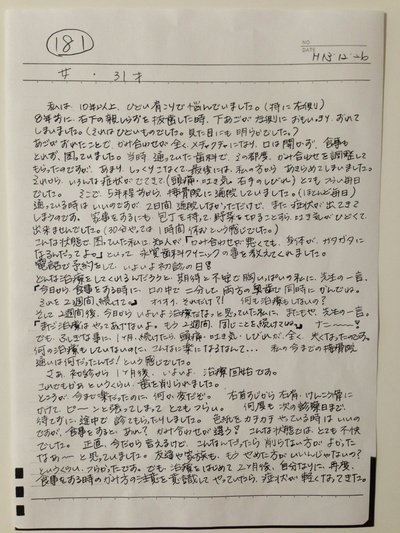 181
NO.
DATE H13.12.26
女・31才
私は、10年以上、ひどい肩こりで悩んでいました。(特に左側り)
8年前に、右下の親しらずを抜歯した時、下あごが左側りにおもいっきり、ずれて
しまいました。(それはひどいものでした。見た目にも明らかでした。)
あごがずれたことで、かみ合わせが全くメチャクチャになり、口は開かず、食事も
とれず、困っていました。当時通っていた歯科で、その都度、かみ合わせを調整して
もらったのですが、あまり、しっくりこなくて、最後には、私の方からあきらめてしまいました。
それから、いろんな症状がでてきて(頭痛・吐き気・右手のしびれ)とてもつらい毎日
でした。そこで、5年程前から、接骨院に通院していました。(ほとんど毎日)
通っている時はいいのですが、2日間通院しなかっただけで、また症状が出てきて
しまうのです。家事をするにも、包丁を持って野菜を切ることすら、吐き気がひどくて
出来ませんでした。(30分やっては1時間休むという感じでした。)
こんな状態で困っていた私に知人が「かみ合わせが悪くても、身体が、ガタガタに
なるんだってよ。」といって歯科クリニックの事を教えてくれました。
電話で予約をして、いよいよ初診の日!!
どんな治療をしてくれるんだろうと、期待と不安で胸いっぱいの私に、先生の一言。
「今日から食事をする時に、口の中で二分して、両方の奥歯で同時にかんでね。
それを2週間、続けて。」オイオイ、それだけ?!何も治療もしないの?
そして2週間後、今日からいよいよ治療だなっと思っていた私に、またもや、先生の一言。
「まだ治療はやってあげないよ。もう2週間、同じことを続けてね。」ナニ〜〜!?
でも、ふしぎな事に、1ヶ月、続けたら、頭痛・吐き気・しびれが、全く、無くなったのです。
何の治療もしていないのに、こんなに楽になるなんて… 私の今までの接骨院
通いは何だったんだ!という感じでした。
さあ、初診から1ヶ月後、いよいよ、治療開始です。
これでもか、というくらい、歯を削られました。
ところが、今まで楽だったのに、何か変だぞ。右首すじから右肩、けんこう骨に
かけて、ピーンと張ってしまって、とてもつらい。何度も次の診察日まで、
待てずに途中で診てもらったりしました。色紙をカチカチやっている時はいいの
ですが、食事をすると、あれ?かみ合わせが違う?こんな状態では、とても不快
でした。正直、今だから言えるけど、こんなんだったら削らない方がよかった
なあ〜と思っていました。友達や家族も、もうやめた方がいいんじゃないの?
というくらい、つらかったです。でも、治療をはじめて2ヶ月後、自分なりに、再度、
食事をする時のかみ方の注意を意識してやっていたら、症状が軽くなってきた。